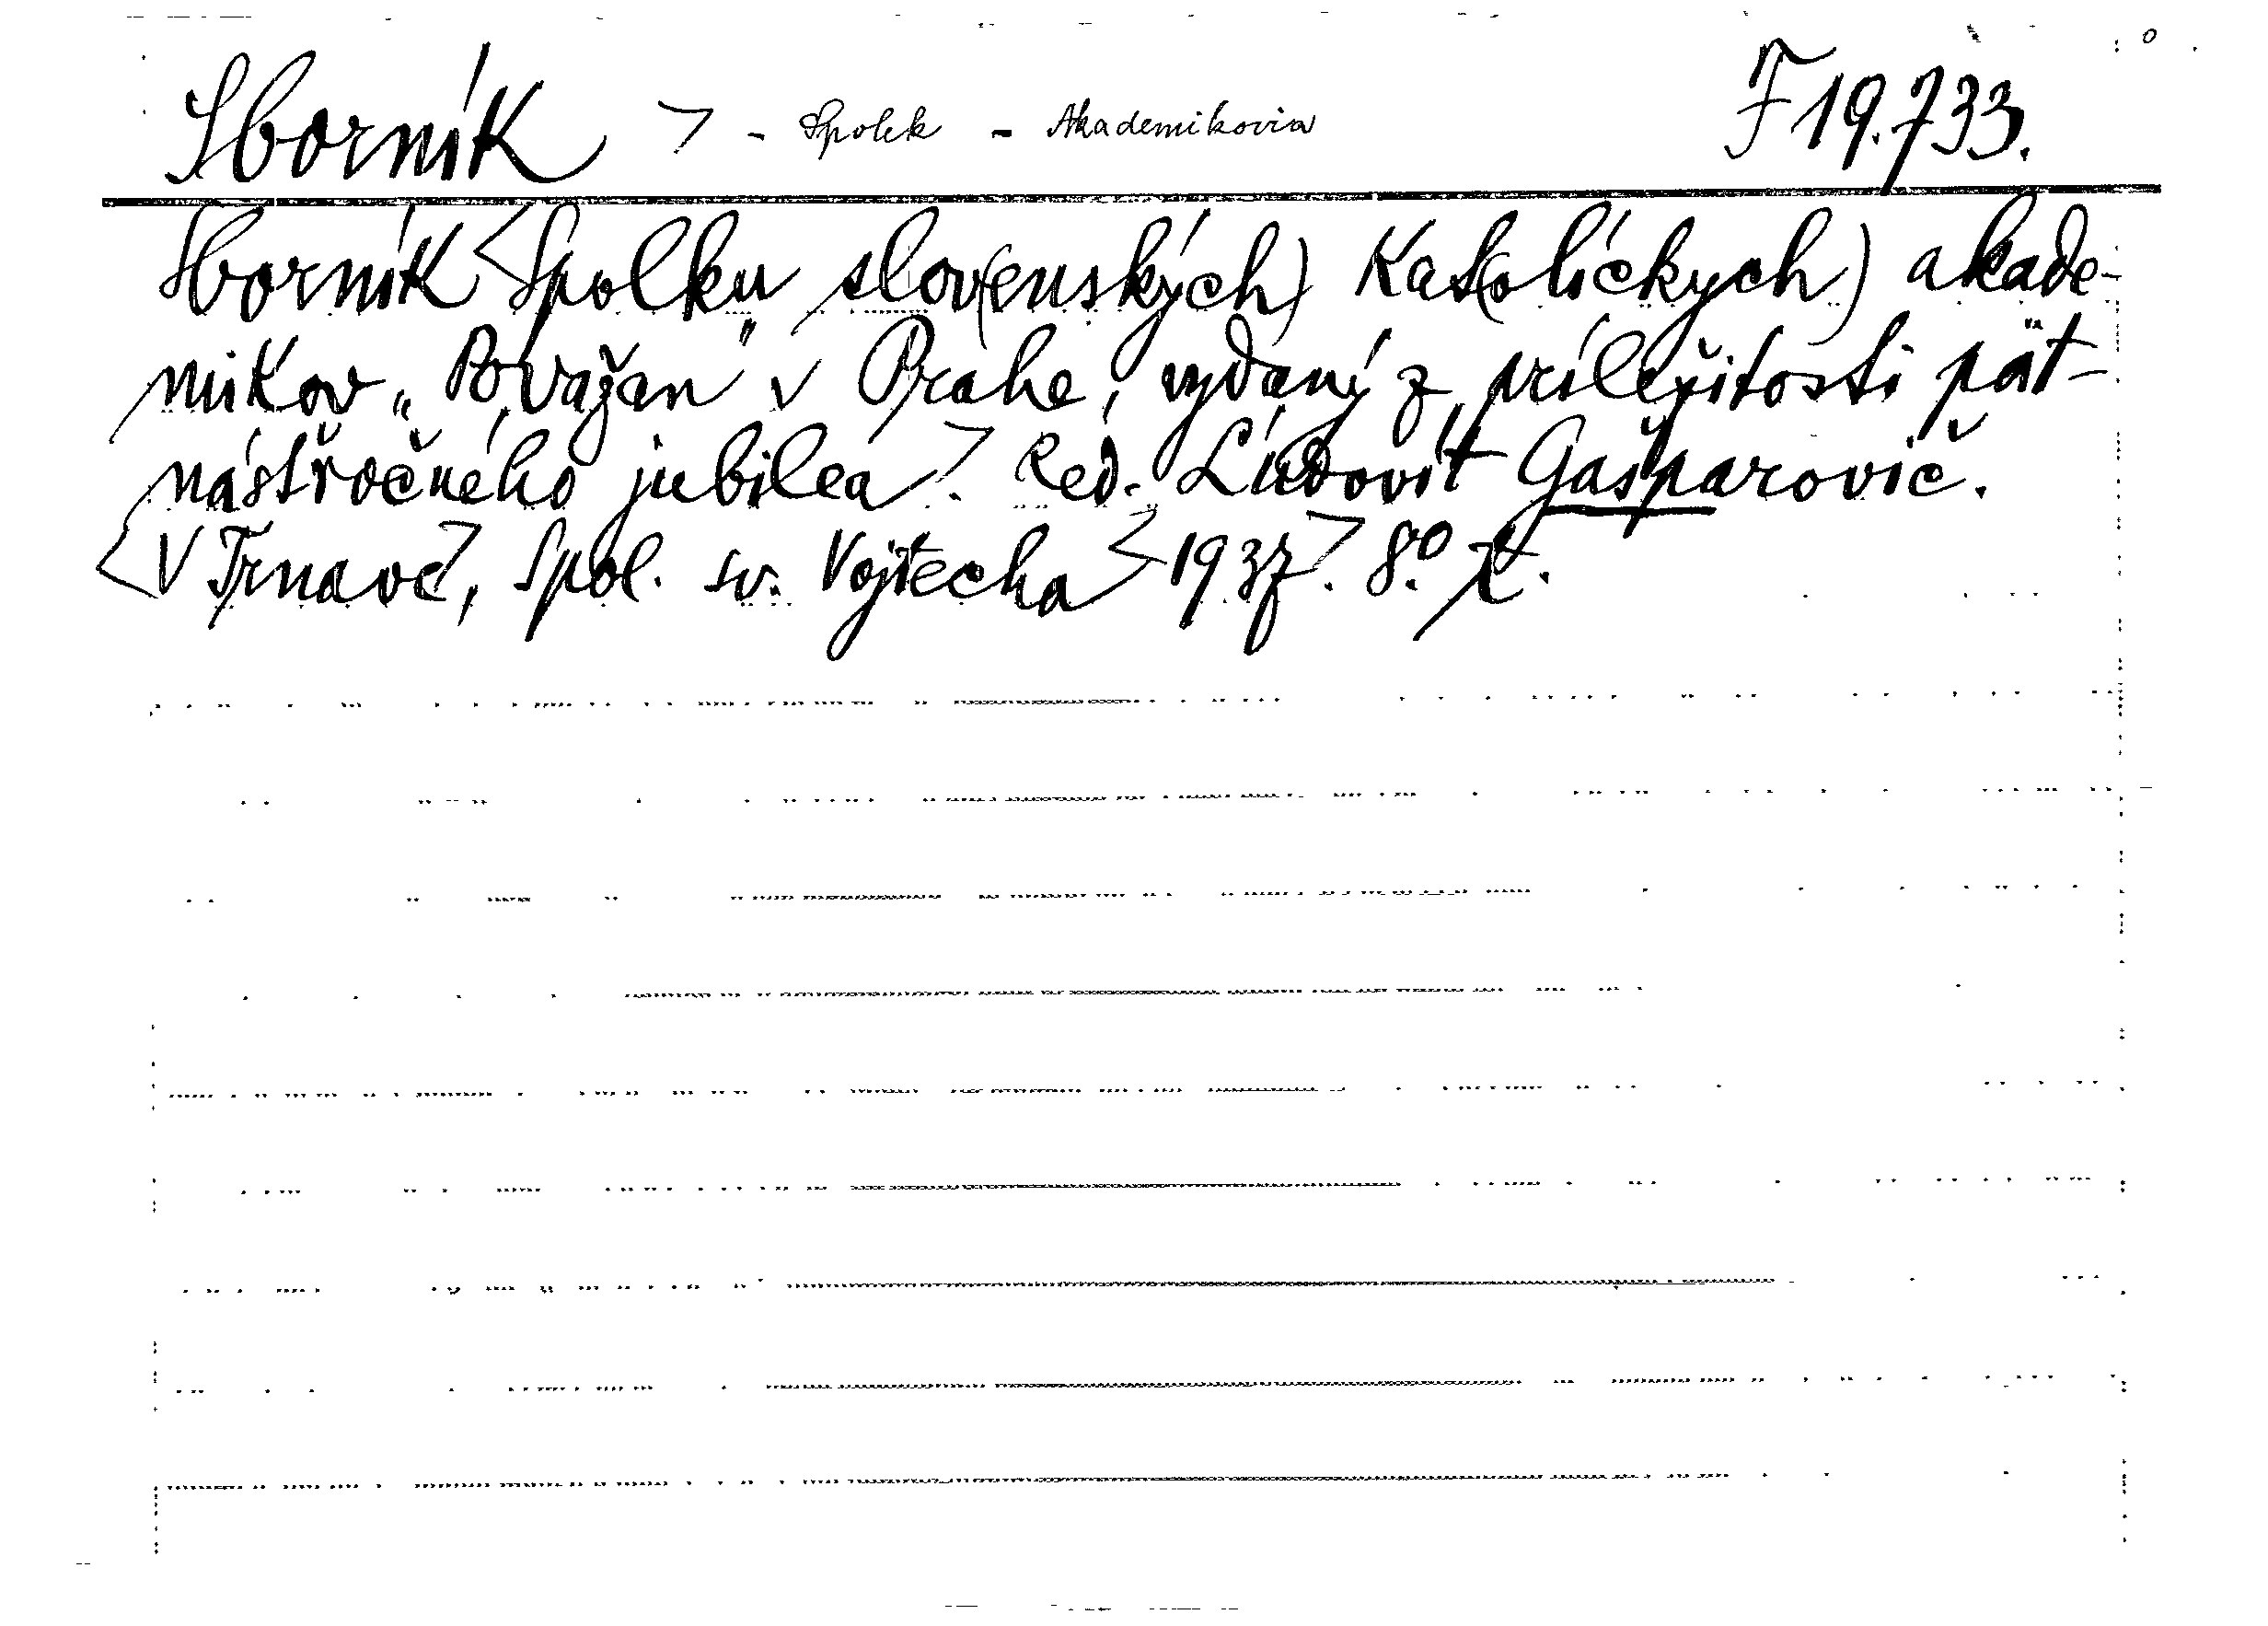 Sborník > - Spolek - Akademikovia F 19.733.
Sborník <Spolku slov(enských) kat(olíckych) akade-
mikov „Považan" v Prahe, vydaný z príležitosti pät-
násťročného jubilea>. Red. Ľudovít Gašparovič.
<V Trnave>, Spol. sv. Vojtecha <1937>. 8°.